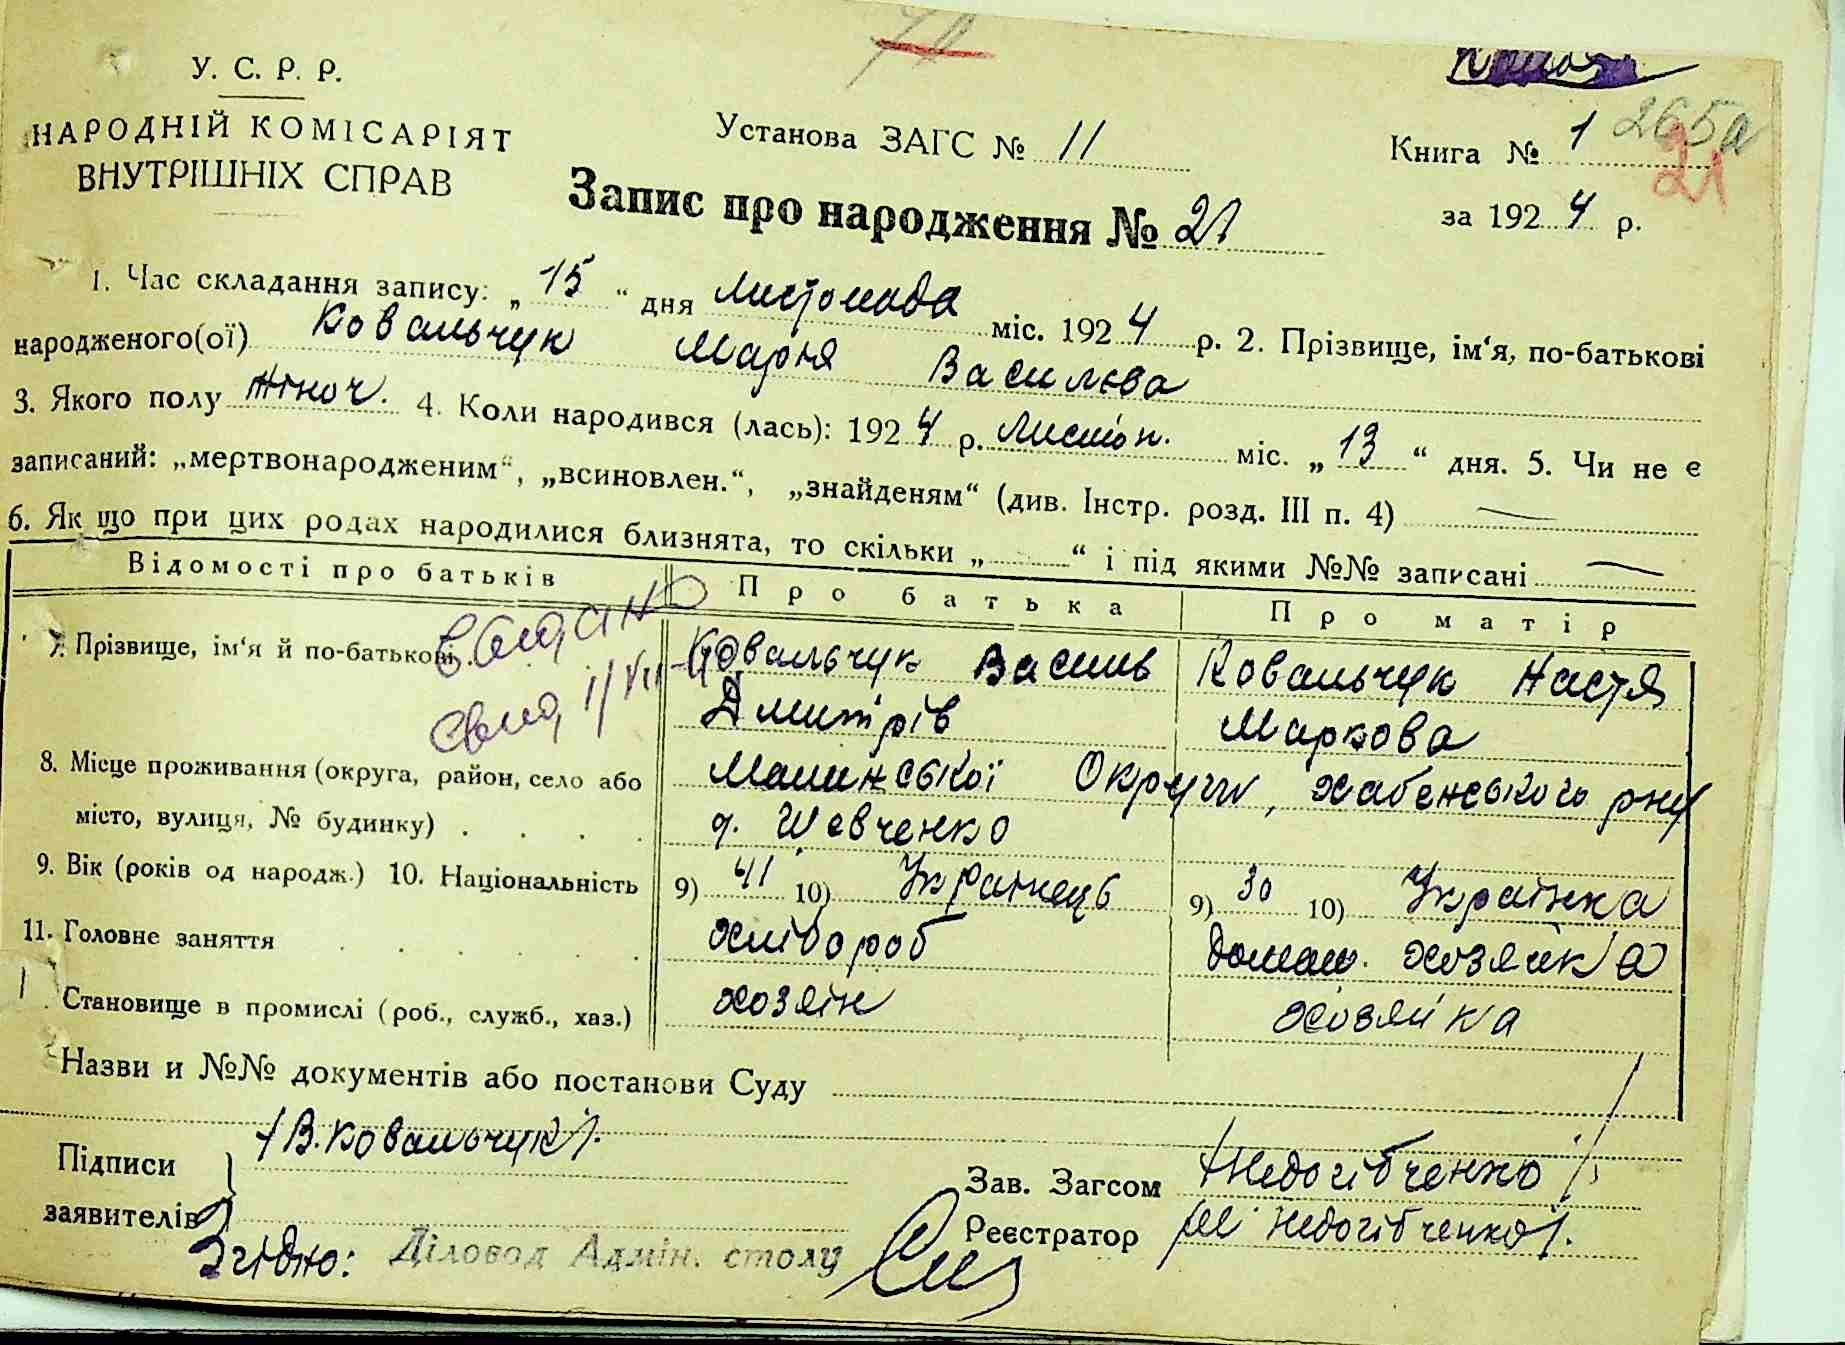 У. С. Р. Р.
НАРОДНІЙ КОМІСАРІЯТ
ВНУТРІШНІХ СПРАВ
Установа ЗАГС № 11
Книга № 1 265а
21
Запис про народження № 21
за 1924 р.
1. Час складання запису: „15“ дня листопада міс. 1924 р. 2. Прізвище, ім‘я, по-батькові
народженого(ої) Ковальчук Марія Васильєва
3. Якого полу жіноч. 4. Коли народився (лась): 1924 р. листоп. міс. „13“ дня. 5. Чи не є
записаний: „мертвонародженим“, „всиновлен.“, „знайденям“ (див. Інстр. розд. III п. 4) —
6. Як що при цих родах народилися близнята, то скільки „ “ і під якими №№ записані —
Відомості про батьків Про батька Про матір
7. Прізвище, ім‘я й по-батькові Ковальчук Василь Дмитрів Ковальчук Настя Маркова
8. Місце проживання (округа, район, село або місто, вулиця, № будинку) Малинської Округи, Хабенського р-ну
д. Шевченко
9. Вік (років од народж.) 10. Національність 9) 41 10) Українець 9) 30 10) Українка
11. Головне заняття хлібороб домаш. хозяйка
Становище в промислі (роб., служб., хаз.) хозяїн хозяйка
Назви и №№ документів або постанови Суду
Підписи
заявителів
/В. Ковальчук/.
Зав. Загсом /Недогібченко/
Реєстратор /М. Недогібченко/.
Згідно: Діловод Адмін. столу